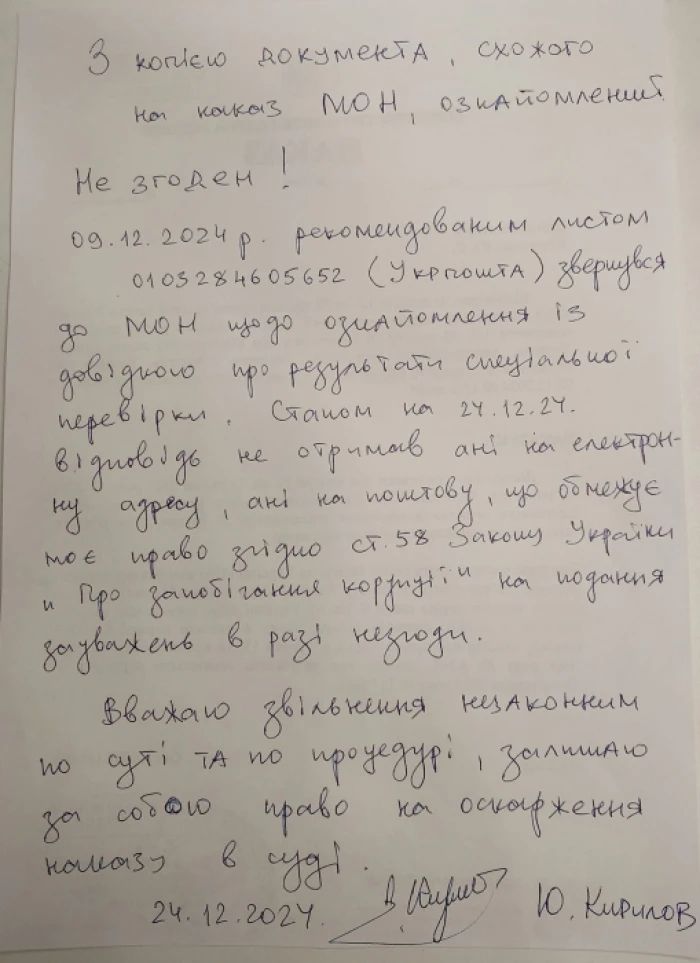 З копією документа, схожого
на наказ МОН, ознайомлений.
Не згоден!
09.12.2024 р. рекомендованим листом
0103284605652 (Укрпошта) звернувся
до МОН щодо ознайомлення із
довідкою про результати спеціальної
перевірки. Станом на 24.12.24.
відповідь не отримав ані на електрон-
ну адресу, ані на поштову, що обмежує
моє право згідно ст. 58 Закону України
"Про запобігання корупції" на подання
зауважень в разі незгоди.
Вважаю звільнення незаконним
по суті та по процедурі, залишаю
за собою право на оскарження
наказу в суді.
24.12.2024. Ю. Кирилов